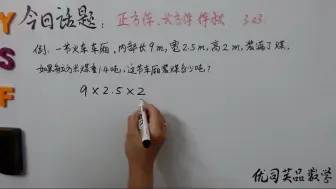 Y
S
F
今日话题: 正方体、长方体体积 3.23
例: 一节火车车厢,内部长9m,宽2.5m,高2m,装满了煤,
如果每立方米煤重1.4吨,这节车厢装煤多少吨?
9×2.5×2
优司英品数学